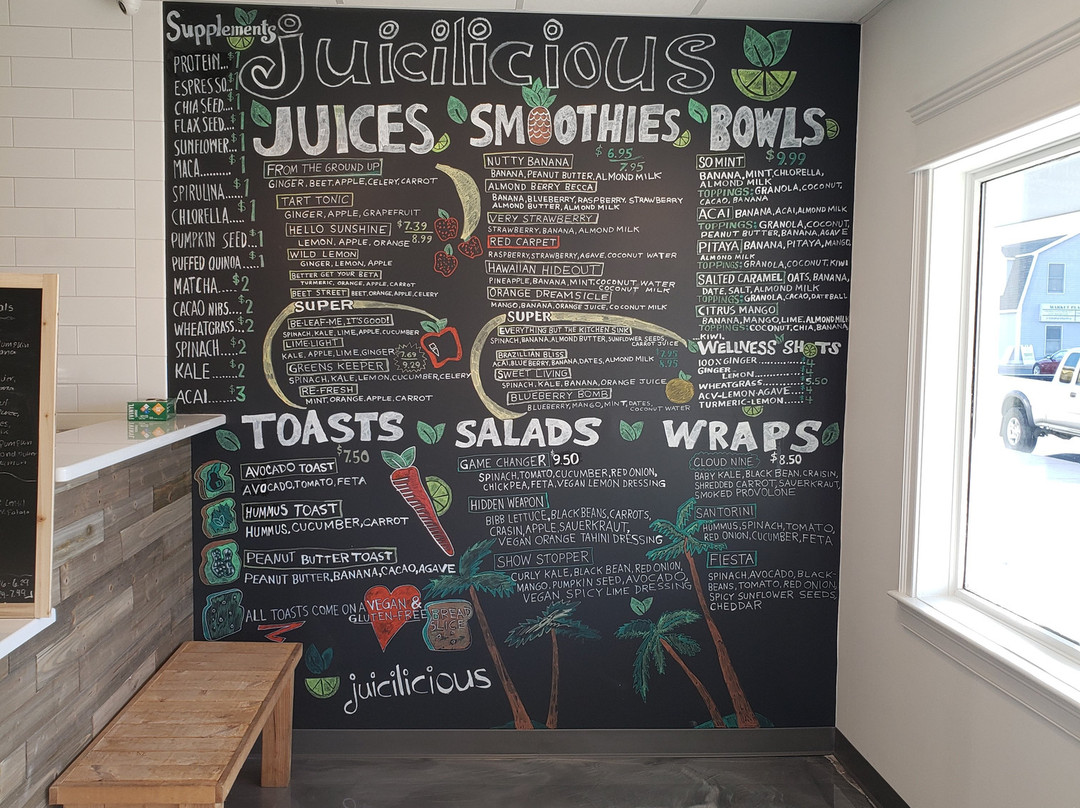 Supplements
PROTEIN...$1
ESPRESSO...$1
CHIA SEED...$1
FLAX SEED...$1
SUNFLOWER...$1
MACA...$1
SPIRULINA...$1
CHLORELLA...$1
PUMPKIN SEED..$1
PUFFED QUINOA...$1
MATCHA...$2
CACAO NIBS..$2
WHEATGRASS..$2
SPINACH...$2
KALE...$2
ACAI...$3
juicilicious
JUICES
FROM THE GROUND UP
GINGER, BEET, APPLE, CELERY, CARROT
TART TONIC
GINGER, APPLE, GRAPEFRUIT
HELLO SUNSHINE $7.39
LEMON, APPLE, ORANGE 8.99
WILD LEMON
GINGER, LEMON, APPLE
BETTER GET YOUR BETA
TURMERIC, ORANGE, APPLE, CARROT
BEET STREET BEET, ORANGE, APPLE, CELERY
SUPER
BE-LEAF-ME, IT'S GOOD!
SPINACH, KALE, LIME, APPLE, CUCUMBER
LIME-LIGHT
KALE, APPLE, LIME, GINGER
7.69
9.29
GREENS KEEPER
SPINACH, KALE, LEMON, CUCUMBER, CELERY
RE-FRESH
MINT, ORANGE, APPLE, CARROT
SMOOTHIES
NUTTY BANANA $6.95
7.95
BANANA, PEANUT BUTTER, ALMOND MILK
ALMOND BERRY BECCA
BANANA, BLUEBERRY, RASPBERRY, STRAWBERRY
ALMOND BUTTER, ALMOND MILK
VERY STRAWBERRY
STRAWBERRY, BANANA, ALMOND MILK
RED CARPET
RASPBERRY, STRAWBERRY, AGAVE, COCONUT WATER
HAWAIIAN HIDEOUT
PINEAPPLE, BANANA, MINT, COCONUT WATER
COCONUT MILK
ORANGE DREAMSICLE
MANGO, BANANA, ORANGE JUICE, COCONUT MILK
SUPER
EVERYTHING BUT THE KITCHEN SINK
SPINACH, BANANA, ALMOND BUTTER, SUNFLOWER SEEDS,
CARROT JUICE
BRAZILIAN BLISS
ACAI, BLUEBERRY, BANANA, DATES, ALMOND MILK
SWEET LIVING
SPINACH, KALE, BANANA, ORANGE JUICE
BLUEBERRY BOMB
BLUEBERRY, MANGO, MINT, DATES,
COCONUT WATER
BOWLS
SO MINT $9.99
BANANA, MINT, CHLORELLA,
ALMOND MILK
TOPPINGS: GRANOLA, COCONUT,
CACAO, BANANA
ACAI BANANA, ACAI, ALMOND MILK
TOPPINGS: GRANOLA, COCONUT,
PEANUT BUTTER, BANANA, AGAVE
PITAYA BANANA, PITAYA, MANGO,
ALMOND MILK
TOPPINGS: GRANOLA, COCONUT, KIWI
SALTED CARAMEL OATS, BANANA,
DATE, SALT, ALMOND MILK
TOPPINGS: GRANOLA, CACAO, DATE BALL
CITRUS MANGO
BANANA, MANGO, LIME, ALMOND MILK
TOPPINGS: COCONUT, CHIA, BANANA,
KIWI
WELLNESS SHOTS
DOX GINGER
GINGER
LEMON
WHEATGRASS 5.50
ACV-LEMON-AGAVE
TURMERIC-LEMON
TOASTS
$7.50
AVOCADO TOAST
AVOCADO, TOMATO, FETA
HUMMUS TOAST
HUMMUS, CUCUMBER, CARROT
PEANUT BUTTER TOAST
PEANUT BUTTER, BANANA, CACAO, AGAVE
ALL TOASTS COME ON A VEGAN &
GLUTEN-FREE BREAD
SLICE
juicilicious
SALADS
GAME CHANGER $9.50
SPINACH, TOMATO, CUCUMBER, RED ONION,
CHICKPEA, FETA, VEGAN LEMON DRESSING
HIDDEN WEAPON
BIBB LETTUCE, BLACK BEANS, CARROTS,
CRASIN, APPLE, SAUERKRAUT,
VEGAN ORANGE TAHINI DRESSING
SHOW STOPPER
CURLY KALE, BLACK BEAN, RED ONION,
MANGO, PUMPKIN SEED, AVOCADO,
VEGAN SPICY LIME DRESSING
WRAPS
CLOUD NINE $8.50
BABY KALE, BLACK BEAN, CRAISIN,
SHREDDED CARROT, SAUERKRAUT,
SMOKED PROVOLONE
SANTORINI
HUMMUS, SPINACH, TOMATO,
RED ONION, CUCUMBER, FETA
FIESTA
SPINACH, AVOCADO, BLACK-
BEANS, TOMATO, RED ONION,
SPICY SUNFLOWER SEEDS,
CHEDDAR